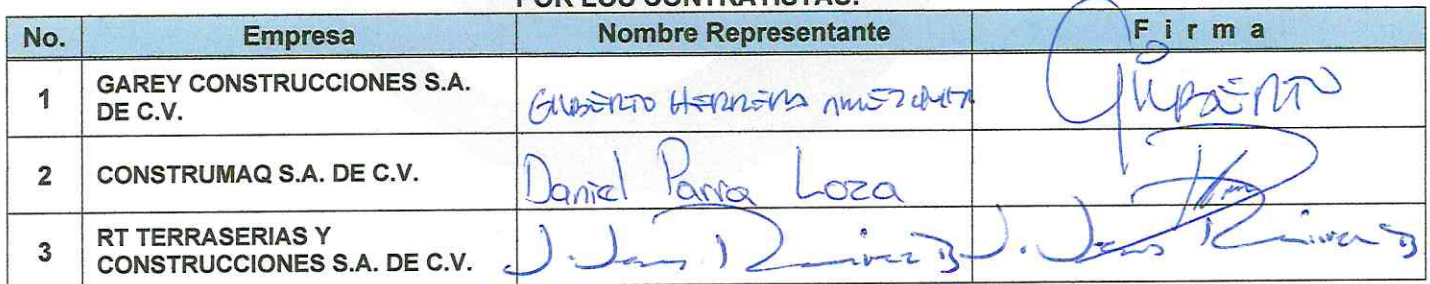 POR LOS CONTRATISTAS:
No. Empresa Nombre Representante F i r m a
1 GAREY CONSTRUCCIONES S.A. DE C.V. GILBERTO HERRERA GILBERTO
2 CONSTRUMAQ S.A. DE C.V. Daniel Parra Loza
3 RT TERRASERIAS Y CONSTRUCCIONES S.A. DE C.V. J. Jesus Ramirez B J. Jesus Ramirez B